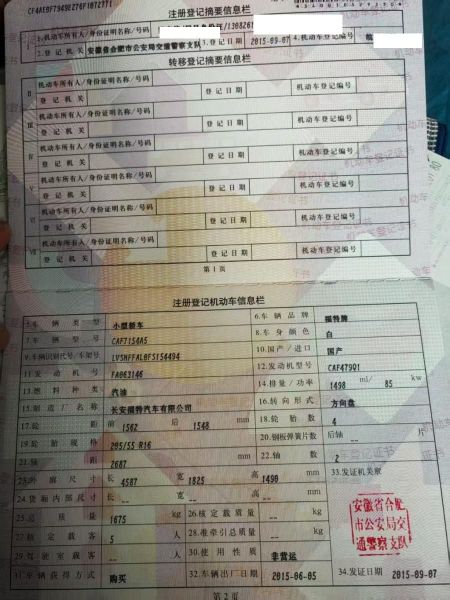 注册登记摘要信息栏
1.机动车所有人/身份证明名称/号码
2.登记机关 安徽省合肥市公安局交通警察支队 3.登记日期 2015-09-07 4.机动车登记编号
转移登记摘要信息栏
II 机动车所有人/身份证明名称/号码
登记机关 登记日期 机动车登记编号
III 机动车所有人/身份证明名称/号码
登记机关 登记日期 机动车登记编号
IV 机动车所有人/身份证明名称/号码
登记机关 登记日期 机动车登记编号
V 机动车所有人/身份证明名称/号码
登记机关 登记日期 机动车登记编号
VI 机动车所有人/身份证明名称/号码
登记机关 登记日期 机动车登记编号
VII 机动车所有人/身份证明名称/号码
登记机关 登记日期 机动车登记编号
第1页
注册登记机动车信息栏
5.车辆类型 小型轿车 6.车辆品牌 福特牌
7.车辆型号 CAF7154A5 8.车身颜色 白
9.车辆识别代号/车架号 LVSHFFAL0FS154494 10.国产/进口 国产
11.发动机号 FA063146 12.发动机型号 CAF479Q1
13.燃料种类 汽油 14.排量/功率 1498 ml/ 85 kw
15.制造厂名称 长安福特汽车有限公司 16.转向形式 方向盘
17.轮距 前 1562 后 1548 mm 18.轮胎数 4
19.轮胎规格 205/55 R16 20.钢板弹簧片数 后轴 -- 片
21.轴距 2687 mm 22.轴数 2
23.外廓尺寸 长 4587 宽 1825 高 1490 mm 33.发证机关章
24.货厢内部尺寸 长 -- 宽 -- 高 -- mm
25.总质量 1675 kg 26.核定载质量 -- kg
27.核定载客 5 人 28.准牵引总质量 -- kg
29.驾驶室载客 -- 人 30.使用性质 非营运
安徽省合肥
市公安局交
通警察支队
31.车辆获得方式 购买 32.车辆出厂日期 2015-06-05 34.发证日期 2015-09-07
第2页